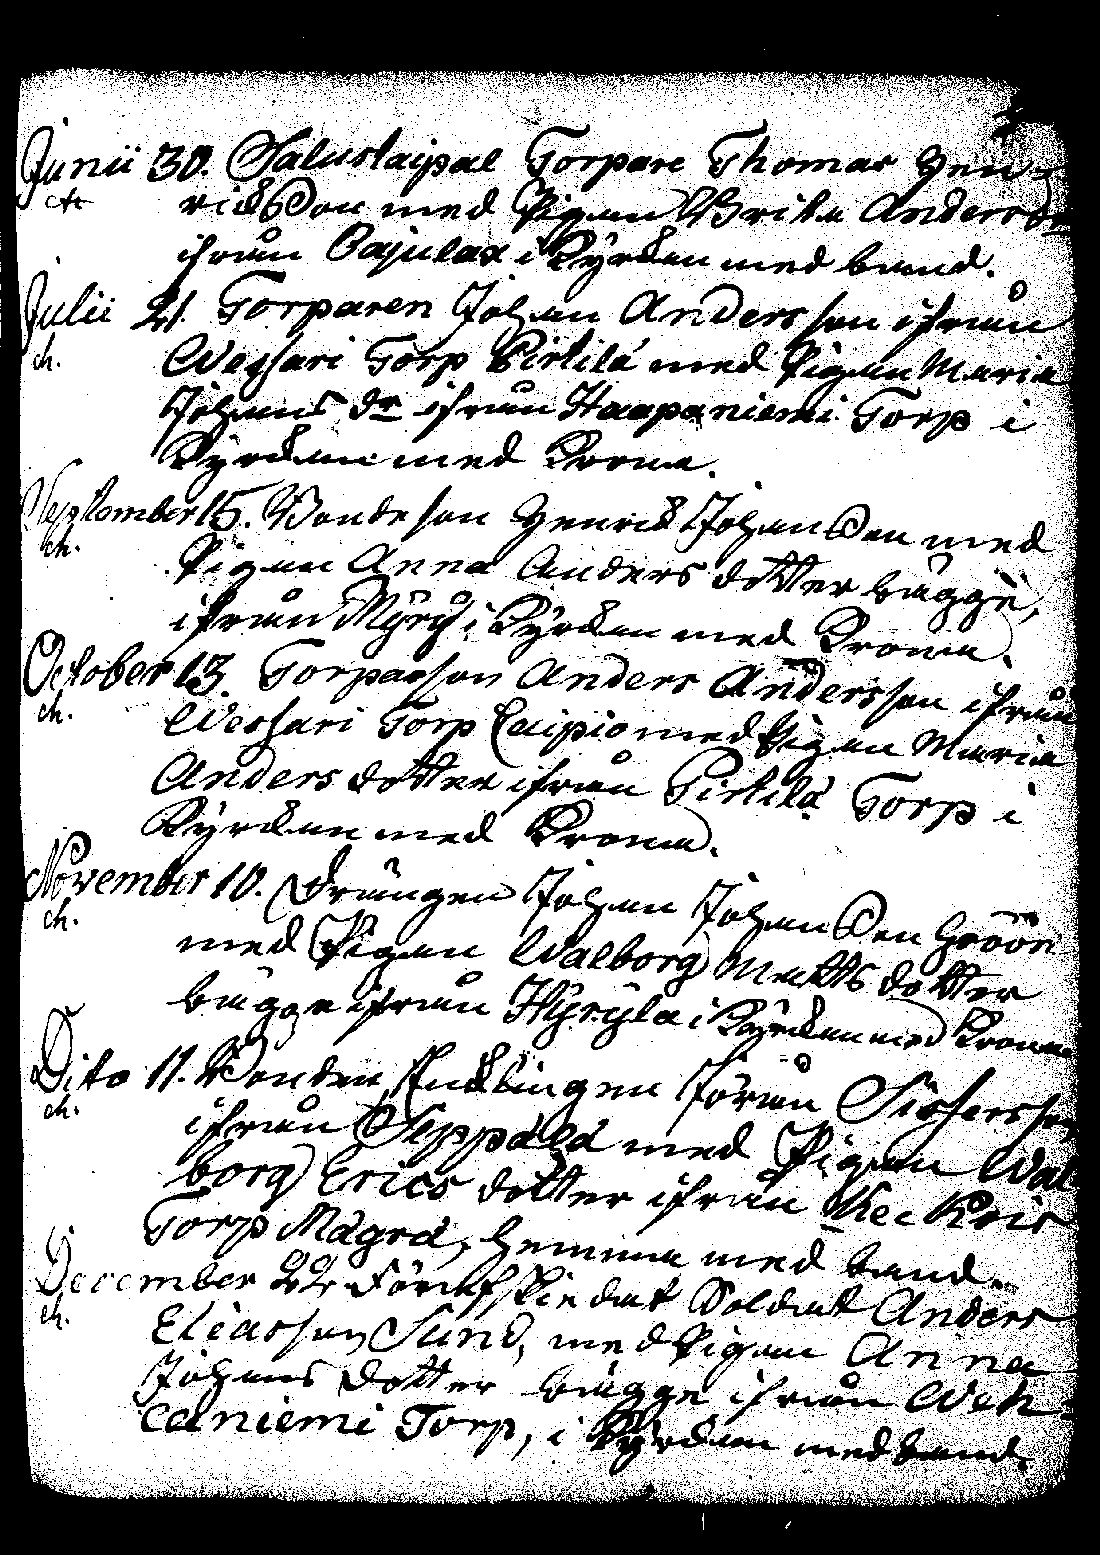 Junii 30. Salustaipal Torpare Thomas Hen-
ch. richsson med Pigan Brita Anders dr
ifrån Pajulax i Kyrkan med band.
Julii 21. Torparen Johan Andersson ifrån
ch. Wessari Torp Pirtilä med Pigan Maria
Johans dr ifrån Haapaniemi Torp i
Kyrkan med Krona.
September 15. Bondeson Henrik Johansson med
ch. Pigan Anna Anders dotter bägge,
ifrån i Kyrkan med Krona.
October 13. Torparson Anders Andersson ifrån
ch. Wessari Torp Laipio med Pigan Maria
Anders dotter ifrån Pirtilä Torp i
Kyrkan med Krona.
November 10. Drängen Johan Johansson Gröön
ch. med Pigan Walborg Matts dotter
bägge ifrån Hyrylä i Kyrkan med Krona
Dito 11. Bonden, Enklingen Jöran Sigfersson
ch. ifrån Seppälä med Pigan Wal
borg Erics dotter ifrån
Torp Mägrä, hemma med band.
December 22 Förafskiedat Soldat Anders
ch. Eliasson Sund, med Pigan Anna
Johans dotter bägge ifrån Weh-
caniemi Torp, i Kyrkan med band.